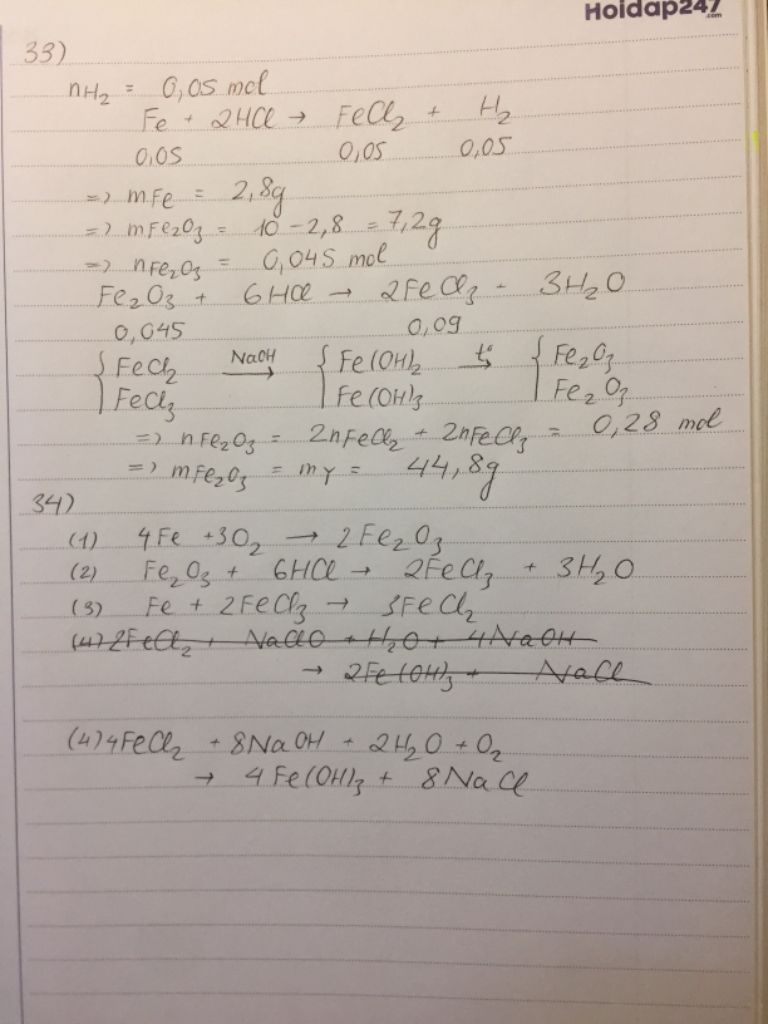 Hoidap247
.com
33)
nH₂ = 0,05 mol
Fe + 2HCl → FeCl₂ + H₂
0,05 0,05 0,05
=> mFe = 2,8g
=> mFe₂O₃ = 10 - 2,8 = 7,2g
=> nFe₂O₃ = 0,045 mol
Fe₂O₃ + 6HCl → 2FeCl₃ - 3H₂O
0,045 0,09
{ FeCl₂ NaOH → { Fe(OH)₂ t° → { Fe₂O₃
FeCl₃ Fe(OH)₃ Fe₂O₃
=> nFe₂O₃ = 2nFeCl₂ + 2nFeCl₃ = 0,28 mol
=> mFe₂O₃ = mY = 44,8g
34)
(1) 4Fe +3O₂ → 2Fe₂O₃
(2) Fe₂O₃ + 6HCl → 2FeCl₃ + 3H₂O
(3) Fe + 2FeCl₃ → 3FeCl₂
(4) 2FeCl₂ + NaClO + H₂O + 4NaOH
→ 2Fe(OH)₃ + NaCl
(4) 4FeCl₂ + 8NaOH + 2H₂O + O₂
→ 4Fe(OH)₃ + 8NaCl